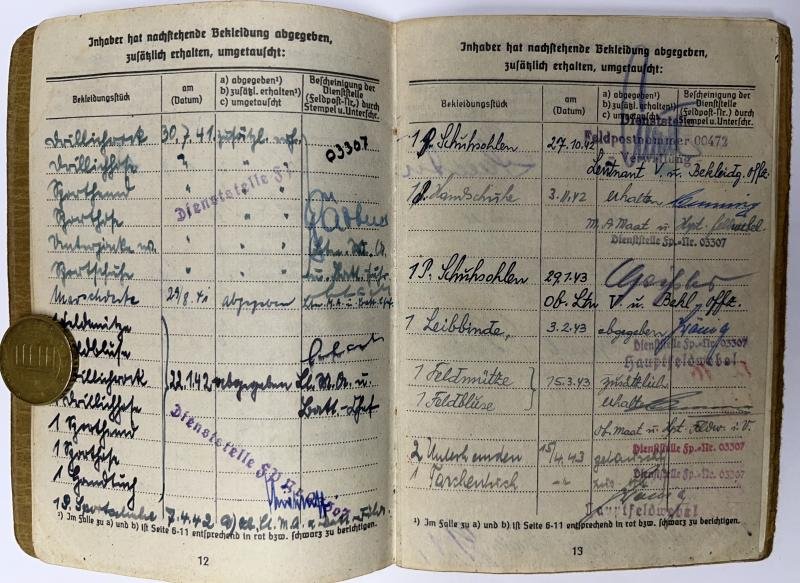 Inhaber hat nachstehende Bekleidung abgegeben,
zusätzlich erhalten, umgetauscht:
Bekleidungsstück
am
(Datum)
a) abgegeben¹)
b) zusätzl. erhalten¹)
c) umgetauscht
Bescheinigung der
Dienststelle
(Feldpost-Nr.) durch
Stempel u. Unterschr.
Drillichrock 30.7.41 zusätzl. erh.
03307
Drillichhose " "
Sporthemd " "
Dienststelle F
Sporthose " "
Unterjacke " "
Sportschuhe " "
u. Batt.
abgegeben
Feldmütze
Feldbluse
Drillichrock 22.1.42 abgegeben Lt. M.A. u.
Drillichhose Batt.-Chef
1 Sporthemd
Dienststelle F.P.
1 Sporthose
1 Handtuch
1 P. Sportschuhe 7.4.42
¹) Im Falle zu a) und b) ist Seite 6-11 entsprechend in rot bzw. schwarz zu berichtigen.
12
Inhaber hat nachstehende Bekleidung abgegeben,
zusätzlich erhalten, umgetauscht:
Bekleidungsstück
am
(Datum)
a) abgegeben¹)
b) zusätzl. erhalten¹)
c) umgetauscht
Bescheinigung der
Dienststelle
(Feldpost-Nr.) durch
Stempel u. Unterschr.
Dienststelle
1 P. Schuhsohlen 27.10.42 Feldpostnummer 00472
Verwaltung
Leutnant V. u. Bekleidg. offz.
1 P. Handschuhe 3.11.42 erhalten
M.A. Maat u. Hpt. feldwebel
Dienststelle Fp.-Nr. 03307
1 P. Schuhsohlen 29.1.43
Ob. Ltn V. u. Bekl. offz.
1 Leibbinde, 3.2.43 abgegeben König
Dienststelle Fp.-Nr. 03307
Hauptfeldwebel
1 Feldmütze 15.3.43 zusätzlich
1 Feldbluse erhalten
Maat u. Hpt-Feldw. i.V.
Dienststelle Fp.-Nr. 03307
2 Unterhemden 15/4.43 getauscht
Dienststelle Fp.-Nr. 03307
1 Taschentuch
König
Hauptfeldwebel
¹) Im Falle zu a) und b) ist Seite 6-11 entsprechend in rot bzw. schwarz zu berichtigen.
13